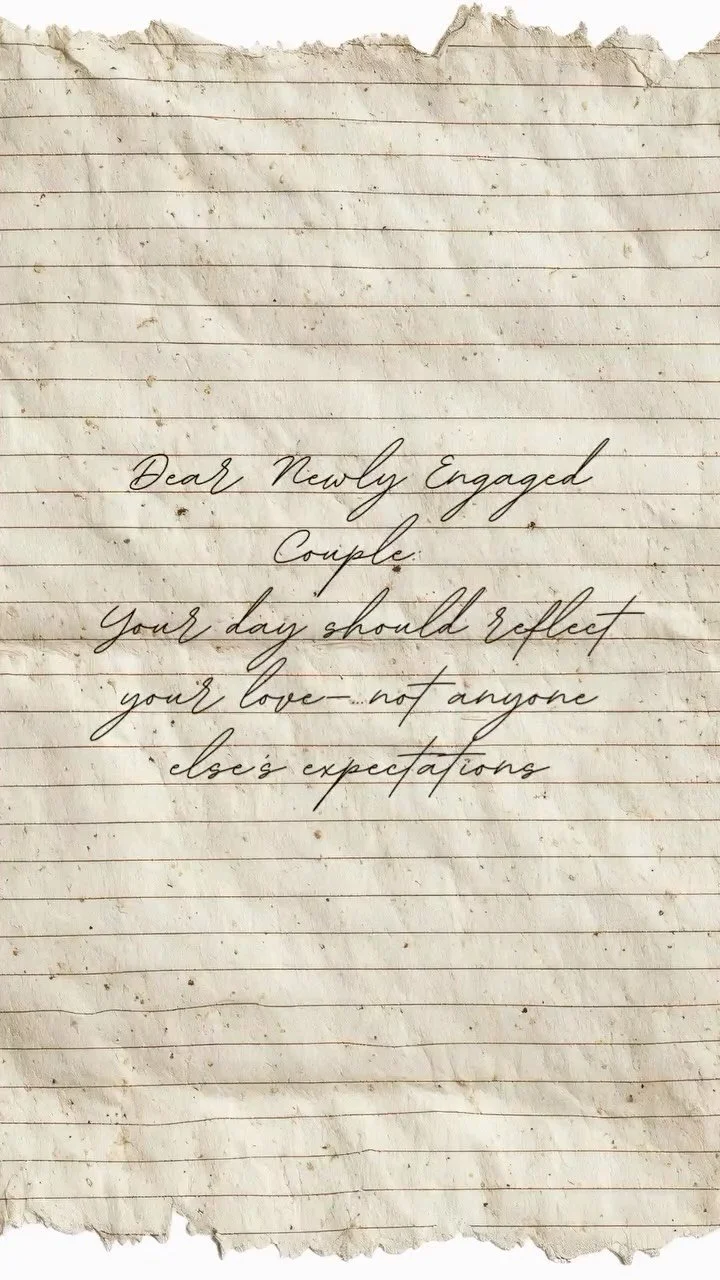 Dear Newly Engaged
Couple:
Your day should reflect
your love— not anyone
else's expectations